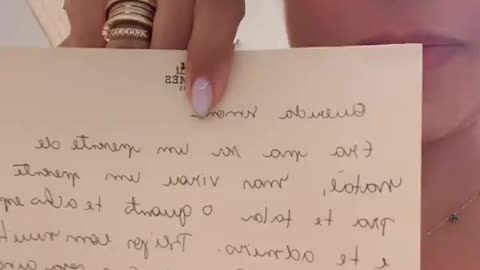 MES
Querida Simon
Era pra ser um presente de
Natal, mas virou um presente
pra te falar o quanto te acho esp
e te admiro. com muit